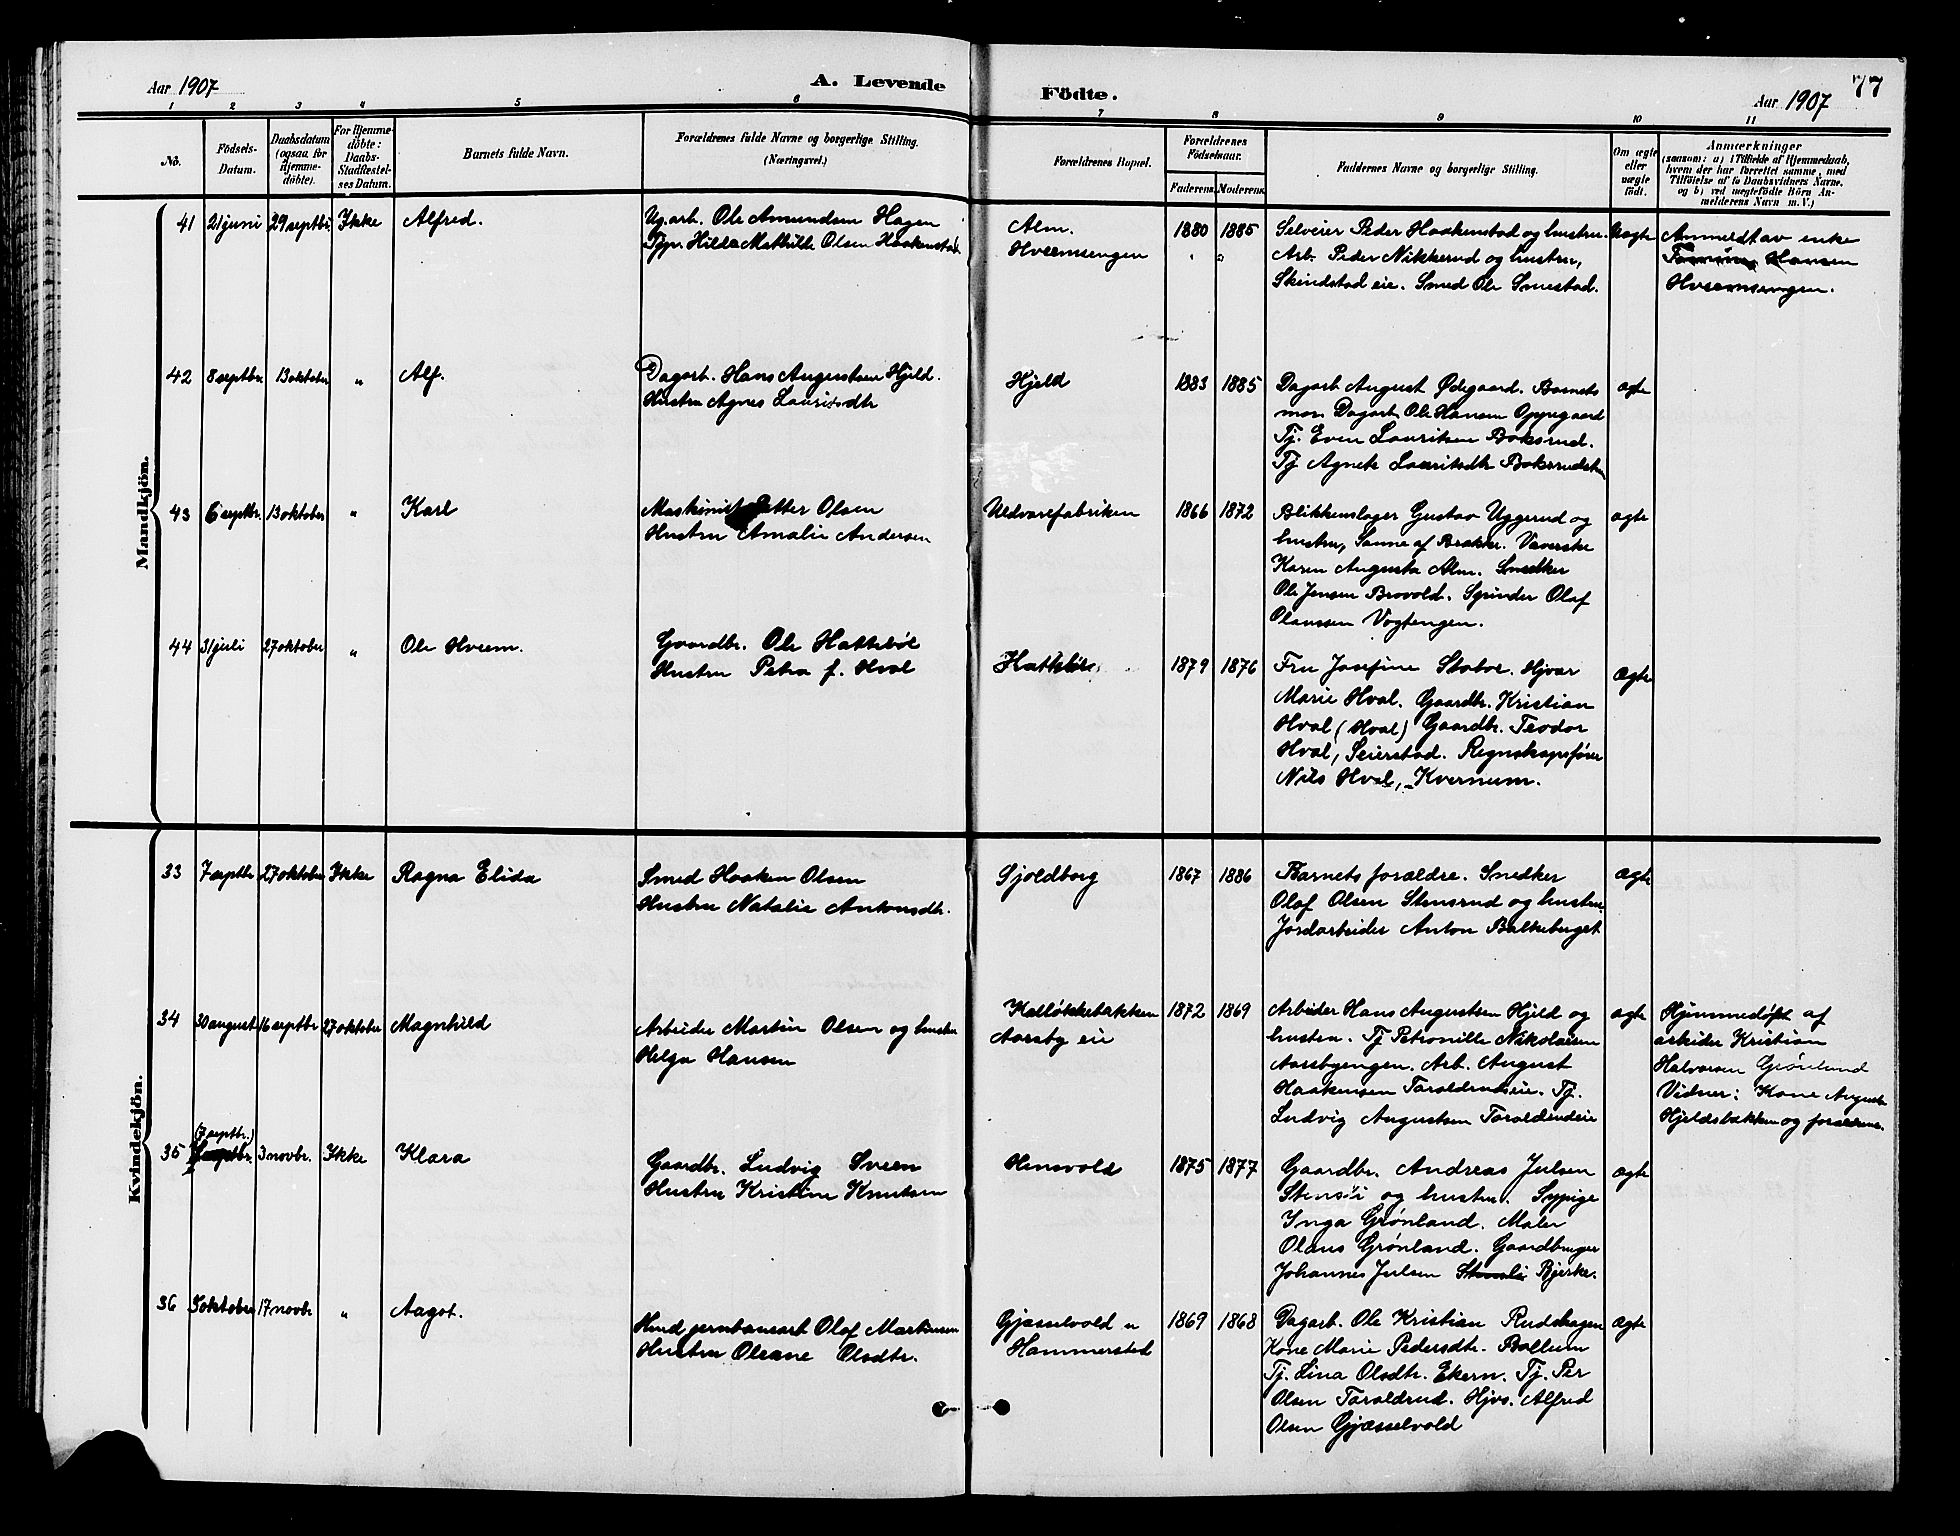 77
Aar 1907
A. Levende
Födte.
Aar 1907
1 2 3 4 5 6 7 8 9 10 11
No.
Födsels-
Datum.
Daabsdatum
(ogsaa for
hjemme-
döbte).
For Hjemme-
döbte:
Daabs-
Stadfæstel-
ses Datum.
Barnets fulde Navn.
Forældrenes fulde Navne og borgerlige Stilling.
(Næringsvei.)
Forældrenes Bopæl.
Forældrenes
Födselsaar.
Faderens. Moderens.
Faddernes Navne og borgerlige Stilling.
Om ægte
eller
uægte
födt.
Anmærkninger
(saasom: a) i Tilfælde af Hjemmedaab,
hvem der har forrettet samme, med
Tilföielse af to Daabsvidners Navne,
og b) ved uægtefödte Börn An-
melderens Navn m. V.)
Mandkjön.
41 21 juni 29 septbr Ikke Alfred.
Ug.arb. Ole Amundsen Hagen
Tjp. Hilda Mathilde Olsen Haakenstad
Alm.
Hveemsengen
1880 1885
Selveier Peder Haakenstad og hustru.
Arb. Peder Nikkerud og hustru,
Skindstad eie. Smed Ole Smestad.
Uægte
Anmeldt av enke
Hansen
Hveemsengen.
42 8 septbr. 13 oktober " Alf.
Dagarb. Hans Augustsen Hjeld.
Hustru Agnes Lauritsdtr
Hjeld
1883 1885
Dagarb August Ødegaard. Barnets
mor. Dagarb. Ole Hansen Oppegaard
Tj. Even Lauritsen Boksrud.
Tj Agnete Lauritsdtr Boksrud
ægte
43 6 septbr. 13 oktober " Karl
Maskinist Petter Olsen
Hustru Amalie Andersen
Uldvarefabriken
1866 1872
Blikkenslager Gustav Uggerud og
hustru, Sanne af Brakke. Væverske
Karen Augusta Alm. Snedker
Ole Jensen Brovold. Spinder Olaf
Olaussen Vogtengen.
ægte
44 31 juli 27 oktober " Ole Hveem.
Gaardbr. Ole Hattebøl
Hustru Petra f. Hval
Hattebøl
1879 1876
Fru Josefine Stabo. Hjvær
Marie Hval. Gaardbr. Kristian
Hval (Hval) Gaardbr. Teodor
Hval, Seierstad. Regnskapsfører
Nils Hval, Kvernum.
Ægte
Kvindekjön.
33 7 septbr 27 oktober Ikke Ragna Elida
Smed Haaken Olsen
Hustru Natalie Antonsdtr.
Sjoldborg
1867 1886
Barnets forældre. Snedker
Olaf Olsen Stensrud og hustru.
Jordarbeider Anton Balkeberget
Ægte
34 30 august 16 septbr 27 oktober Magnhild
Arbeider Martin Olsen og hustru
Helga Hansen
Kalløkkebakken
Aarsby eie
1872 1869
Arbeider Hans Augustsen Hjeld og
hustru. Tj Petronille Nikolaisen
Aarsbyengen. Arb. August
Haakensen Taraldrudeie. Tj.
Ludvig Augustsen Taraldrudeie
ægte
Hjemmedøpt af
arbeider Kristian
Halvorsen Grønlund
Vidner: Kone Auguste
Hjeldsbakken og forældrene.
35 (7 septbr.) 3 novbr. Ikke Klara
Gaardbr. Ludvig Sveen
Hustru Kristine Knutsen
Hensvold
1875 1877
Gaardbr. Andreas Julsen
Stensli og hustru. Sypige
Inga Grønland. Maler
Olaus Grønland. Gaardbruger
Johannes Julsen Stensli Bjerke.
ægte
36 3 oktober 17 novbr " Aagot.
Hmd jernbanearb Olof Martinsen
Hustru Oleane Olsdtr.
Gjøsselvold u
Hammerstad
1869 1868
Dagarb. Ole Kristian Rudshagen
Kone Marie Pedersdtr. Ballum
Tj. Lina Olsdtr. Ekern. Tj. Per
Olsen Taraldrud. Hjvs. Alfred
Olsen Gjøsselvold
Ægte